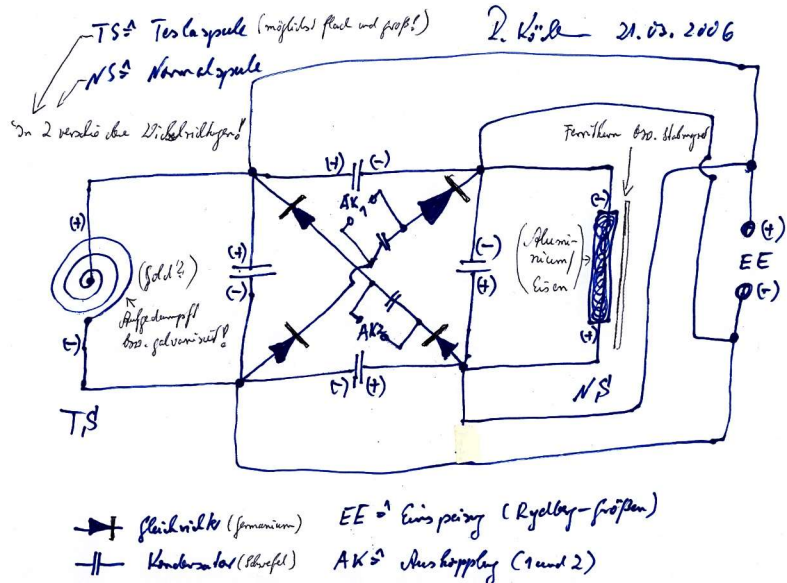 TS ≙ Teslaspule (möglichst flach und groß!)
21.03.2006
NS ≙ Normalspule
In 2 verschiedene Wickelrichtungen!
Ferritkern bzw. Stabmagnet
(+) (-)
AK1
(+)
(-)
(+)
(+)
(-)
(Gold?)
(-)
(+)
(Alumi-
nium/
Eisen)
(+)
EE
(-)
Aufgedampft
bzw. galvanisiert!
(-)
AK2
(+)
(-) (+)
TS
NS
Gleichrichter (Germanium)
EE ≙ Einspeisung (Rydberg-Größen)
Kondensator (Schwefel)
AK ≙ Auskopplung (1 und 2)